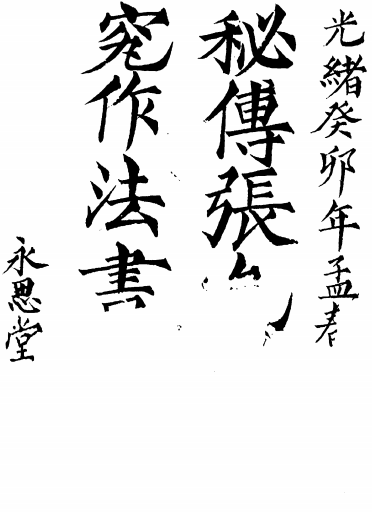 光緒癸卯年孟春
秘傳張
宅作法書
永思堂